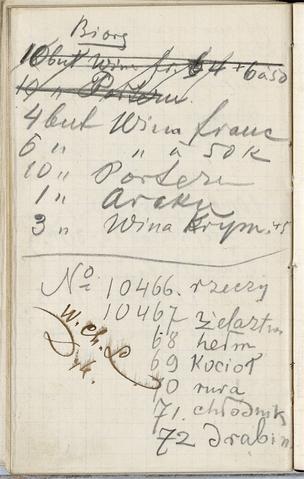 Biorę
10 but Wina fr. 64 + 6 à 50
10 " Porteru
4 but Wina franc
6 " " à 50 K
10 " Porteru
1 " Araku
3 " Wina Krym. 45
No 10466. rzeczy
10467 żelaztwo
68 hełm
69 Kocioł
70 rura
71. chłodnik
72 drabin
W. Ch. L
Dyk.